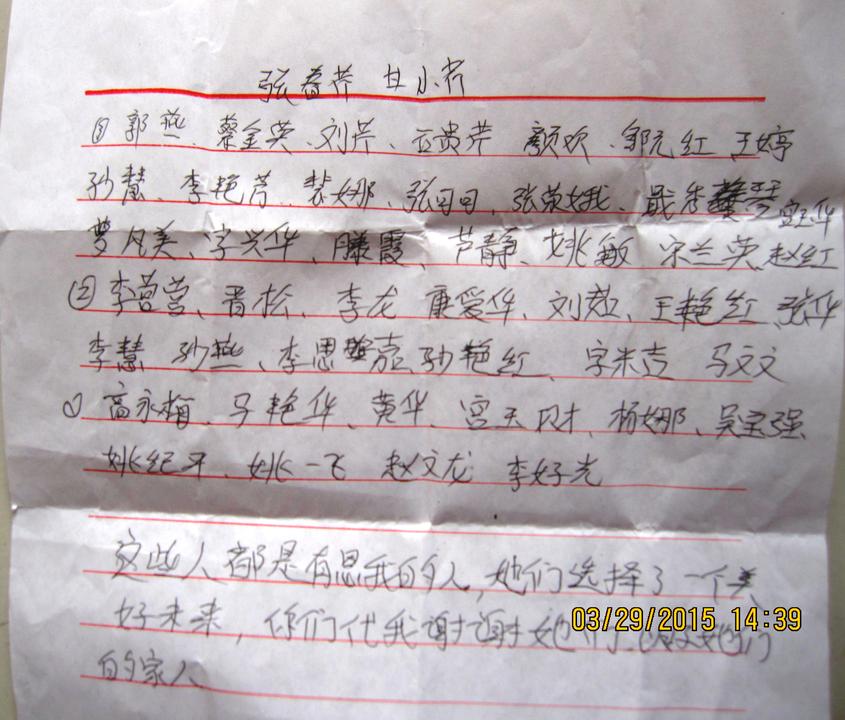 张春芹 甘小芹
③郭燕、蔡金英、刘芹、王贵芹 颜欢、邹元红 王婷
孙慧、李艳芳 裴娜、张日日、张荣娥、戢秀琴
梦凡美、字兴华、滕霞、芦静、姚敏 宋兰英 赵红
②李营营、晋松、李龙 康爱华、刘 王艳红 张华
李慧 孙燕、李思嘉 孙艳红、字米吉 马文文
①高永梅、马艳华、黄华、宫天财、杨娜、吴宝强
姚纪平、姚一飞 赵文龙 李好光
这些人都是有恩我的人,她们选择了一个美
好未来,你们代我谢谢她们
的家人
03/29/2015 14:39